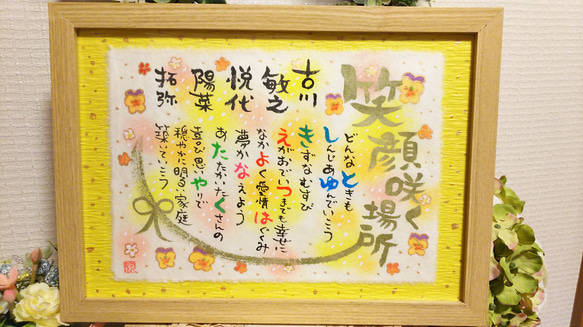 笑顔咲く場所
古川
敏之
悦代
陽菜
拓弥
どんなときも
しんじあゆんでいこう
きずなむすび
えがおでいつまでも幸せに
なかよく愛情はぐくみ
夢かなえよう
あたたかいたくさんの
喜び思いやりで
穏やかに明るい家庭
築いていこう